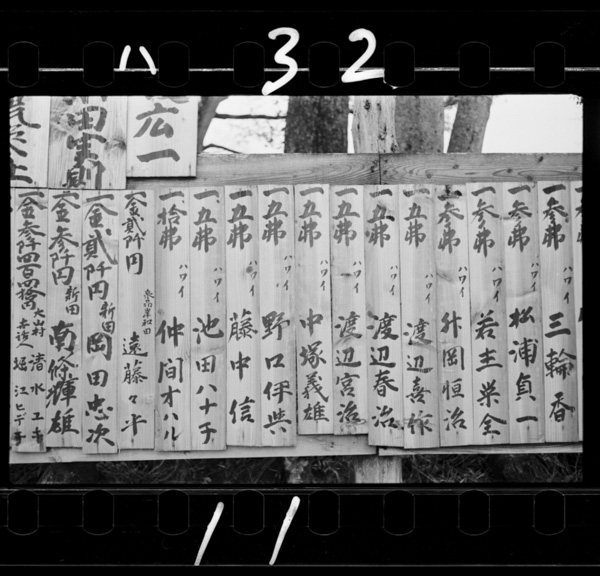 ハ 32
一、参弗 ハワイ 三輪香
一、参弗 ハワイ 松浦貞一
一、参弗 ハワイ 若主栄全
一、参弗 ハワイ 舛岡恒治
一、五弗 ハワイ 渡辺喜祢
一、五弗 ハワイ 渡辺春治
一、五弗 ハワイ 渡辺宮治
一、五弗 ハワイ 中塚義雄
一、五弗 ハワイ 野口伊
一、五弗 ハワイ 藤中信
一、五弗 ハワイ 池田ハナチ
一、拾弗 ハワイ 仲間オハル
一、金貳阡円 岸和田 遠藤
一、金貳阡円 新田 岡田忠次
一、金参阡円 新田 南條輝雄
一、金参阡四百四拾円 大山村 清水ユキ 堀江ヒデ
広一
田実則
11